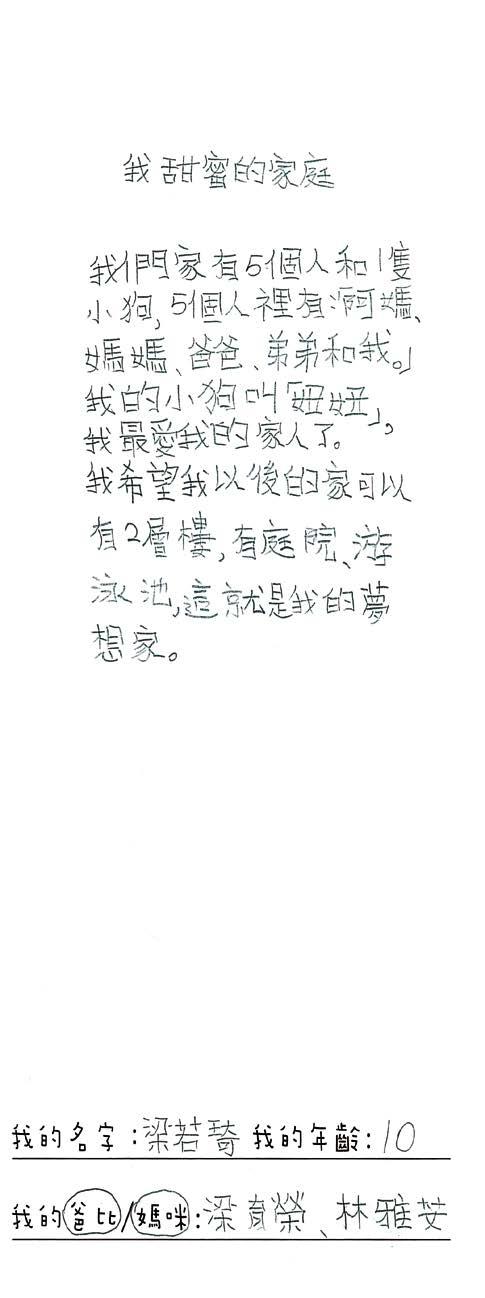 我甜蜜的家庭
我們家有5個人和1隻
小狗,5個人裡有「阿媽、
媽媽、爸爸、弟弟和我。」
我的小狗叫「妞妞」,
我最愛我的家人了。
我希望我以後的家可以
有2層樓,有庭院、游
泳池,這就是我的夢
想家。
我的名字:梁若琦 我的年齡:10
我的爸比/媽咪:梁育榮、林雅芠